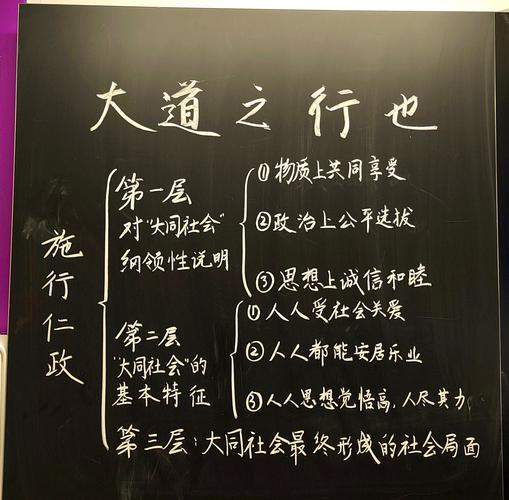 大道之行也
施行仁政
第一层
对"大同社会"
纲领性说明
①物质上共同享受
②政治上公平选拔
③思想上诚信和睦
第二层
"大同社会"的
基本特征
①人人受社会关爱
②人人都能安居乐业
③人人思想觉悟高,人尽其力
第三层:大同社会最终形成的社会局面